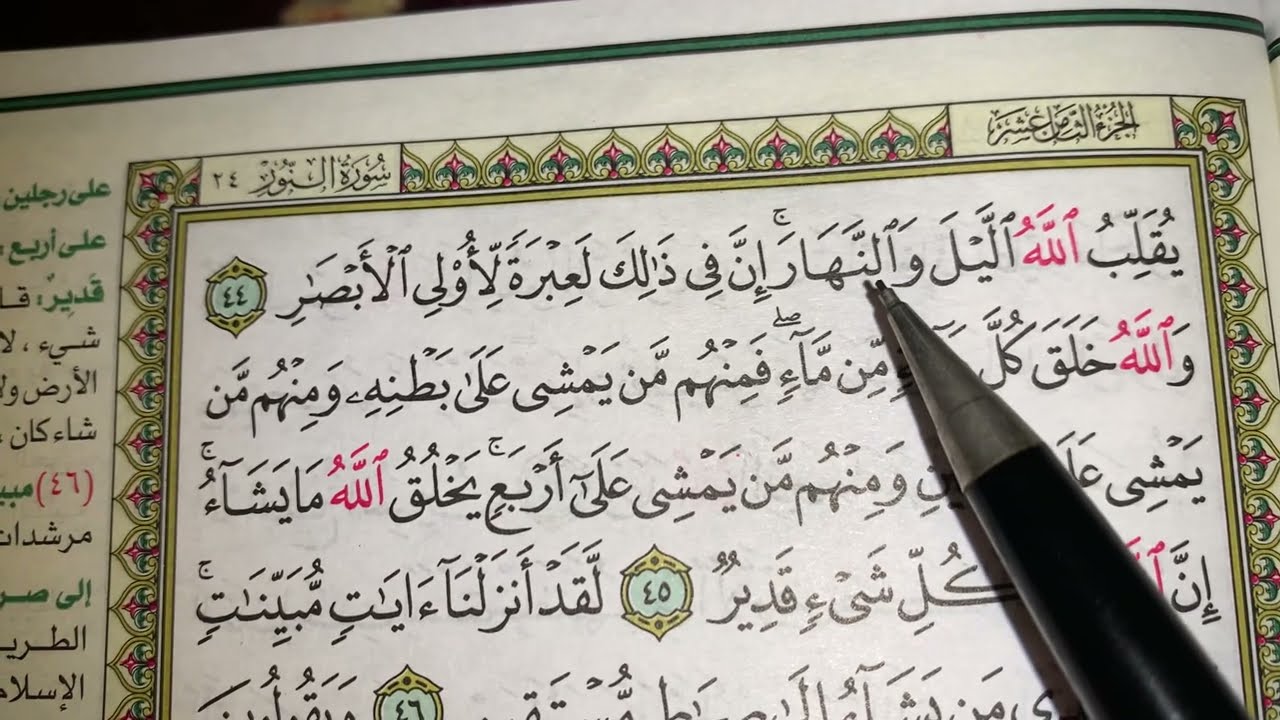 الجزء الثامن عشر
سُورَةُ النُّورِ ٢٤
يُقَلِّبُ ٱللَّهُ ٱلَّيْلَ وَٱلنَّهَارَ ۚ إِنَّ فِى ذَٰلِكَ لَعِبْرَةً لِّأُو۟لِى ٱلْأَبْصَٰرِ ٤٤
وَٱللَّهُ خَلَقَ كُلَّ مِّن مَّآءٍ ۖ فَمِنْهُم مَّن يَمْشِى عَلَىٰ بَطْنِهِۦ وَمِنْهُم مَّن
يَمْشِى وَمِنْهُم مَّن يَمْشِى عَلَىٰٓ أَرْبَعٍ ۚ يَخْلُقُ ٱللَّهُ مَا يَشَآءُ ۚ
إِنَّ كُلِّ شَىْءٍ قَدِيرٌ ٤٥ لَّقَدْ أَنزَلْنَآ ءَايَٰتٍ مُّبَيِّنَٰتٍ ۚ
مَن يَشَآءُ إِلَىٰ صِرَٰطٍ مُّسْتَقِيمٍ ٤٦ وَيَقُولُونَ
على رجلين
على أربع :
قَدِيرٌ:
شيء ، لا
الأرض ولا
شاء كان ،
(٤٦)
مرشدات
إلى
الإسلام